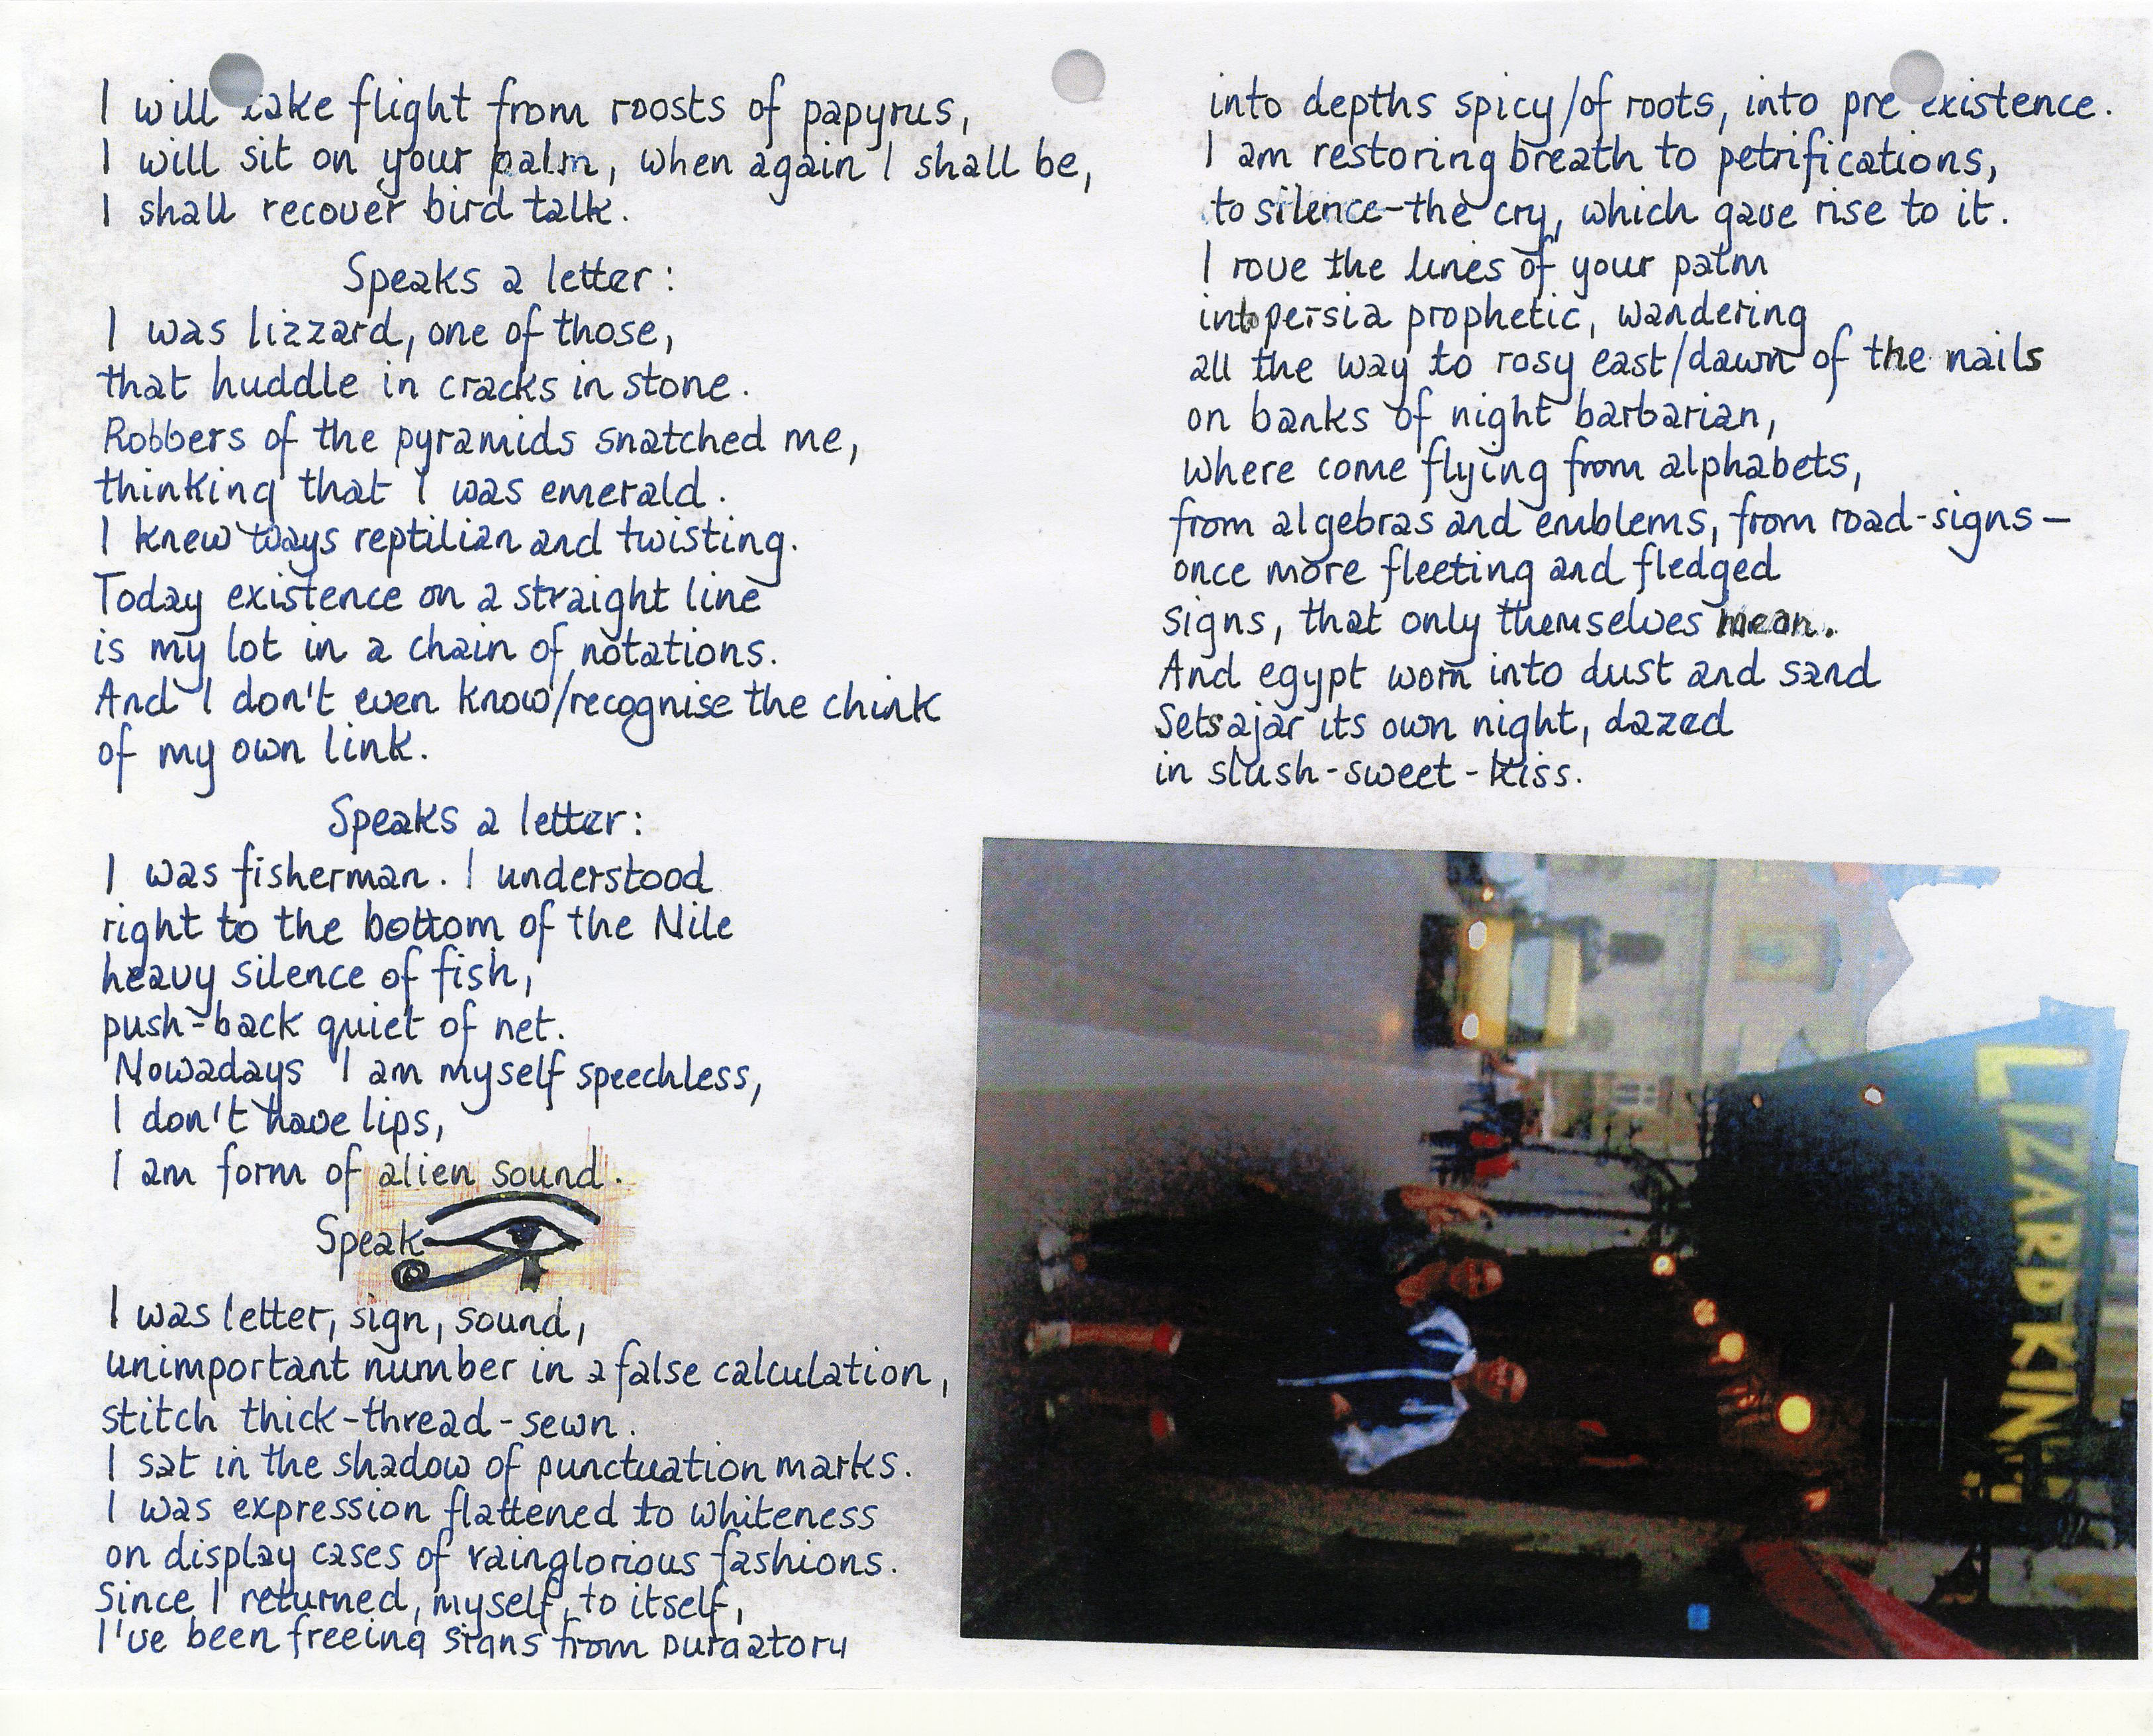 I will take flight from roosts of papyrus,
I will sit on your palm, when again I shall be,
I shall recover bird talk.
Speaks a letter:
I was lizzard, one of those,
that huddle in cracks in stone.
Robbers of the pyramids snatched me,
thinking that I was emerald.
I knew ways reptilian and twisting.
Today existence on a straight line
is my lot in a chain of notations.
And I don't even know/recognise the chink
of my own link.
Speaks a letter:
I was fisherman. I understood
right to the bottom of the Nile
heavy silence of fish,
push-back quiet of net.
Nowadays I am myself speechless,
I don't have lips,
I am form of alien sound.
Speak
I was letter, sign, sound,
unimportant number in a false calculation,
stitch thick-thread-sewn.
I sat in the shadow of punctuation marks.
I was expression flattened to whiteness
on display cases of vainglorious fashions.
Since I returned, myself, to itself,
I've been freeing signs from purgatory
into depths spicy/of roots, into pre existence.
I am restoring breath to petrifications,
to silence-the cry, which gave rise to it.
I rove the lines of your palm
into persia prophetic, wandering
all the way to rosy east/dawn of the nails
on banks of night barbarian,
where come flying from alphabets,
from algebras and emblems, from road-signs—
once more fleeting and fledged
signs, that only themselves mean.
And egypt worn into dust and sand
Sets ajar its own night, dazed
in slush-sweet-kiss.
LIZARD KIN